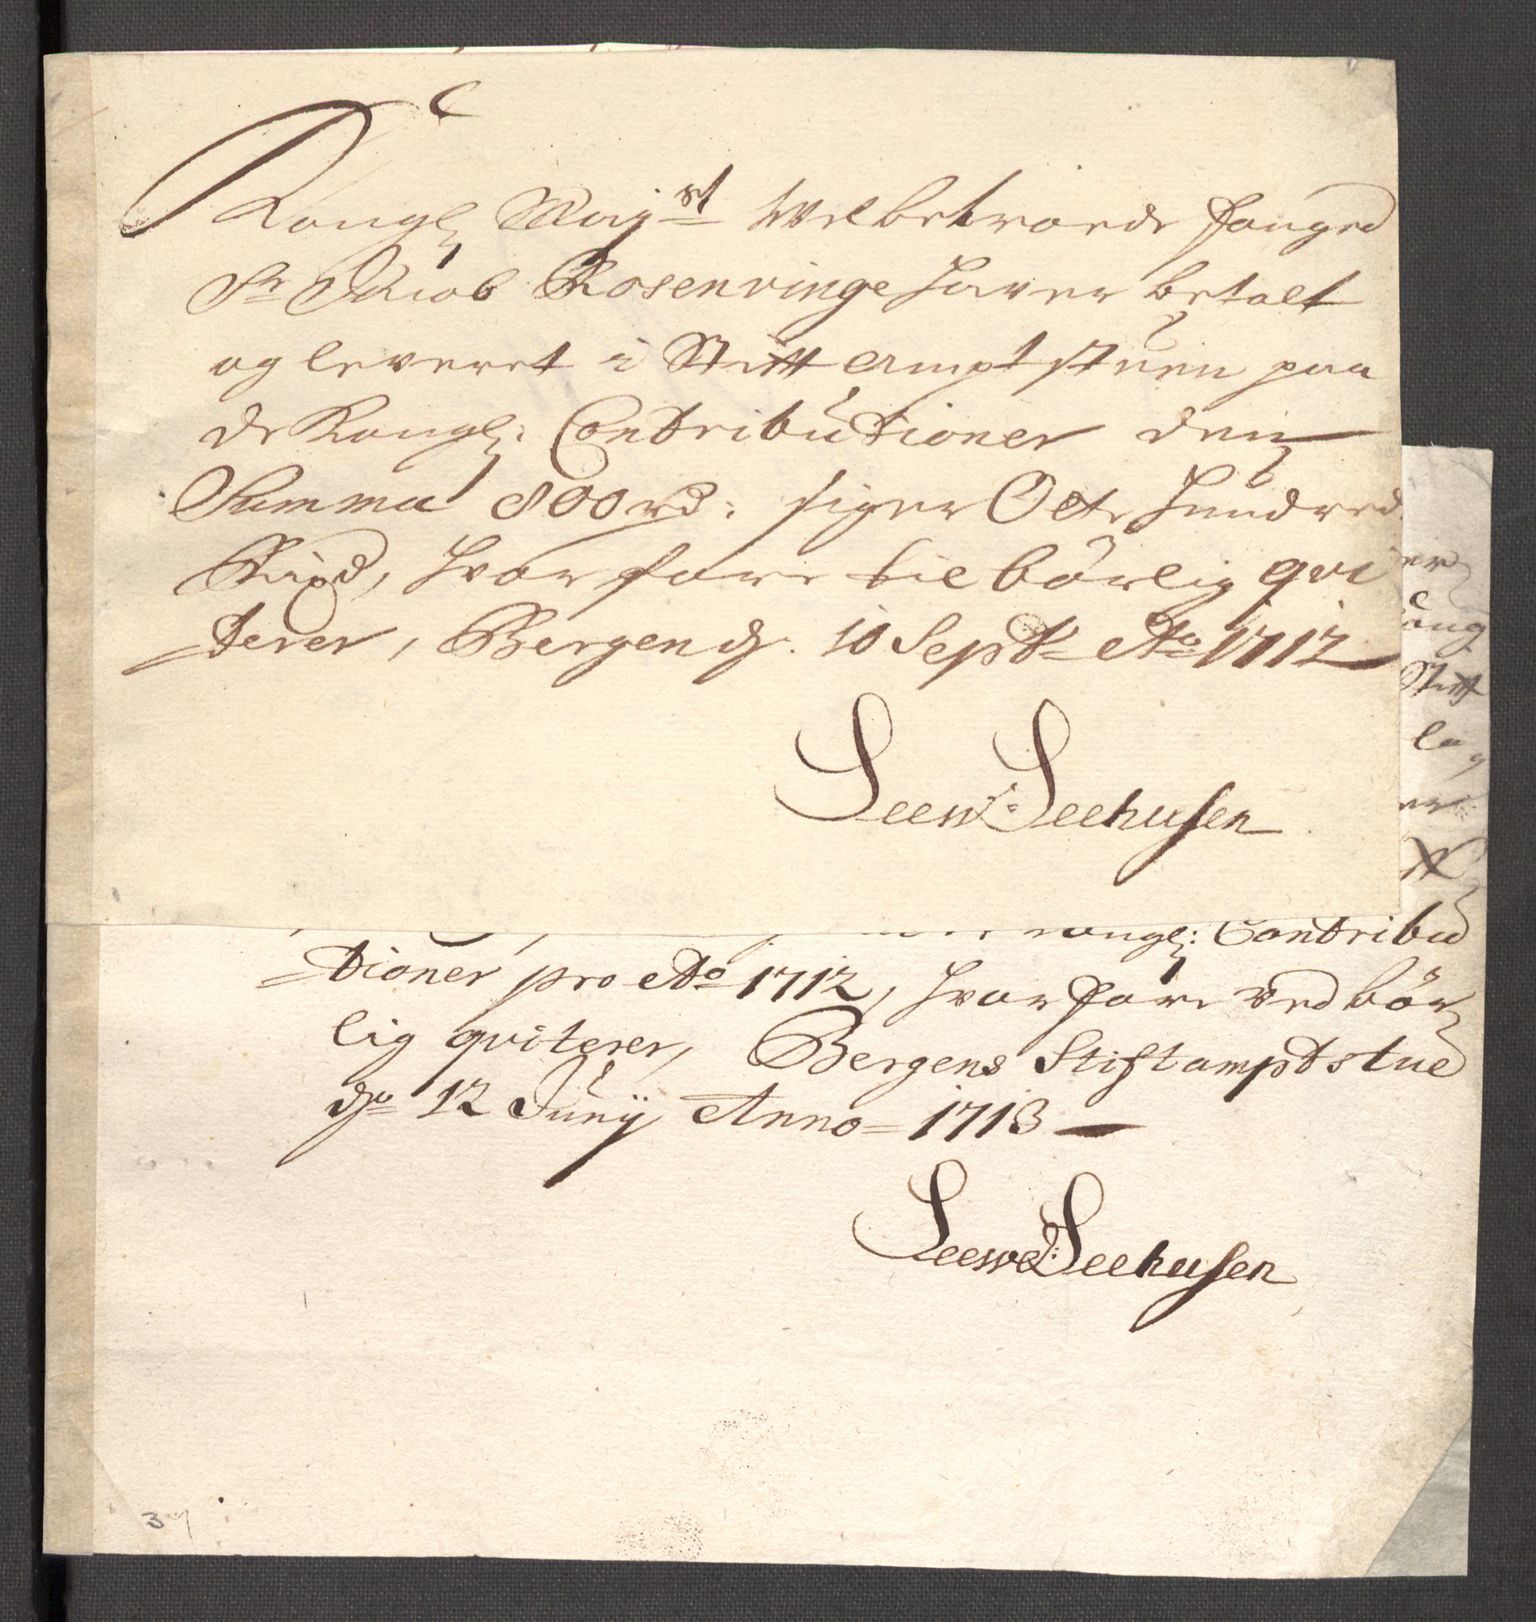 Kongl: Majst Velbetroede fouged
Sr Jacob Rosenvinge haver betalt
og leveret i Stift Ampt stuen paa
de Kongl: Contributioner den
Summa 800 rd: siger Otte Hundred
Rixd, hvor fore tilbörlig qvi
terer, Bergen d. 10 Septr Ao 1712
Seew: Seehusen
er
oug
Stift
lag
er
Kongl: Contribu
tioner pro Ao 1712, hvor fore ved bör
lig qviterer, Bergens Stiftamptstue
do 12 Junij Anno 1713
Seew: Seehusen
3